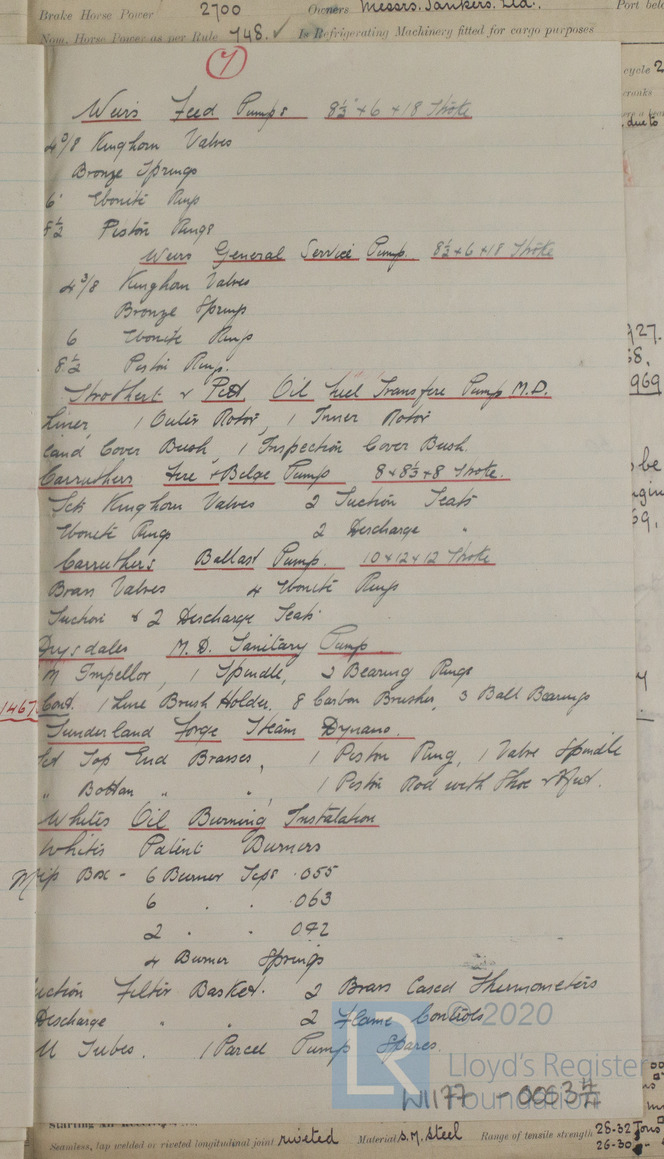 Brake Horse Power 2700 Owners Messrs. Tankers. Ltd. Port
Nom. Horse Power as per Rule 748. ✓ Is Refrigerating Machinery fitted for cargo purposes
cycle 2
cranks
due to
7
Weirs Feed Pumps 8½ × 6 × 18 Stroke
4 3/8 Kinghorn Valves
Bronze Springs
6" Ebonite Rings
8½ Piston Rings
Weirs General Service Pump 8½ × 6 × 18 Stroke
4 3/8 Kinghorn Valves
Bronze Springs
6 Ebonite Rings
8½ Piston Rings.
Strothert & Pitt Oil Fuel Transfere Pump M.D.
Liner, 1 Outer Rotor, 1 Inner Rotor
land Cover Bush, 1 Inspection Cover Bush
Carruthers Fire & Belge Pump 8 × 8½ × 8 Stroke.
Kinghorn Valves 2 Suction Seats
Ebonite Rings 2 Discharge "
Carruthers Ballast Pump. 10 × 12 × 12 Stroke
Brass Valves 4 Ebonite Rings
Suction & 2 Discharge Seats
Drysdales M.D. Sanitary Pump
Impellor, 1 Spindle, 2 Bearing Rings
1467 Cont. 1 Line Brush Holder, 8 Carbon Brushes, 3 Ball Bearings
Sunderland Forge Steam Dynamo.
Top End Brasses, 1 Piston Ring, 1 Valve Spindle
" Bottom " ", 1 Piston Rod with Shoe
Whites Oil Burning Instalation
Whites Patent Burners
Box - 6 Burner Tips .055
6 . . .063
2 . . 042
4 Burner Springs
uction Filter Basket. 2 Brass Cased Thermometers
Discharge " " 2 Flame Controls
U Tubes. 1 Parcel Pump Spares.
927.
58.
969
be
69,
© 2020
Lloyd's Register
Foundation
W1177 - 0053
Seamless, lap welded or riveted longitudinal joint riveted Material S.M. Steel Range of tensile strength 28-32 Tons
26-30